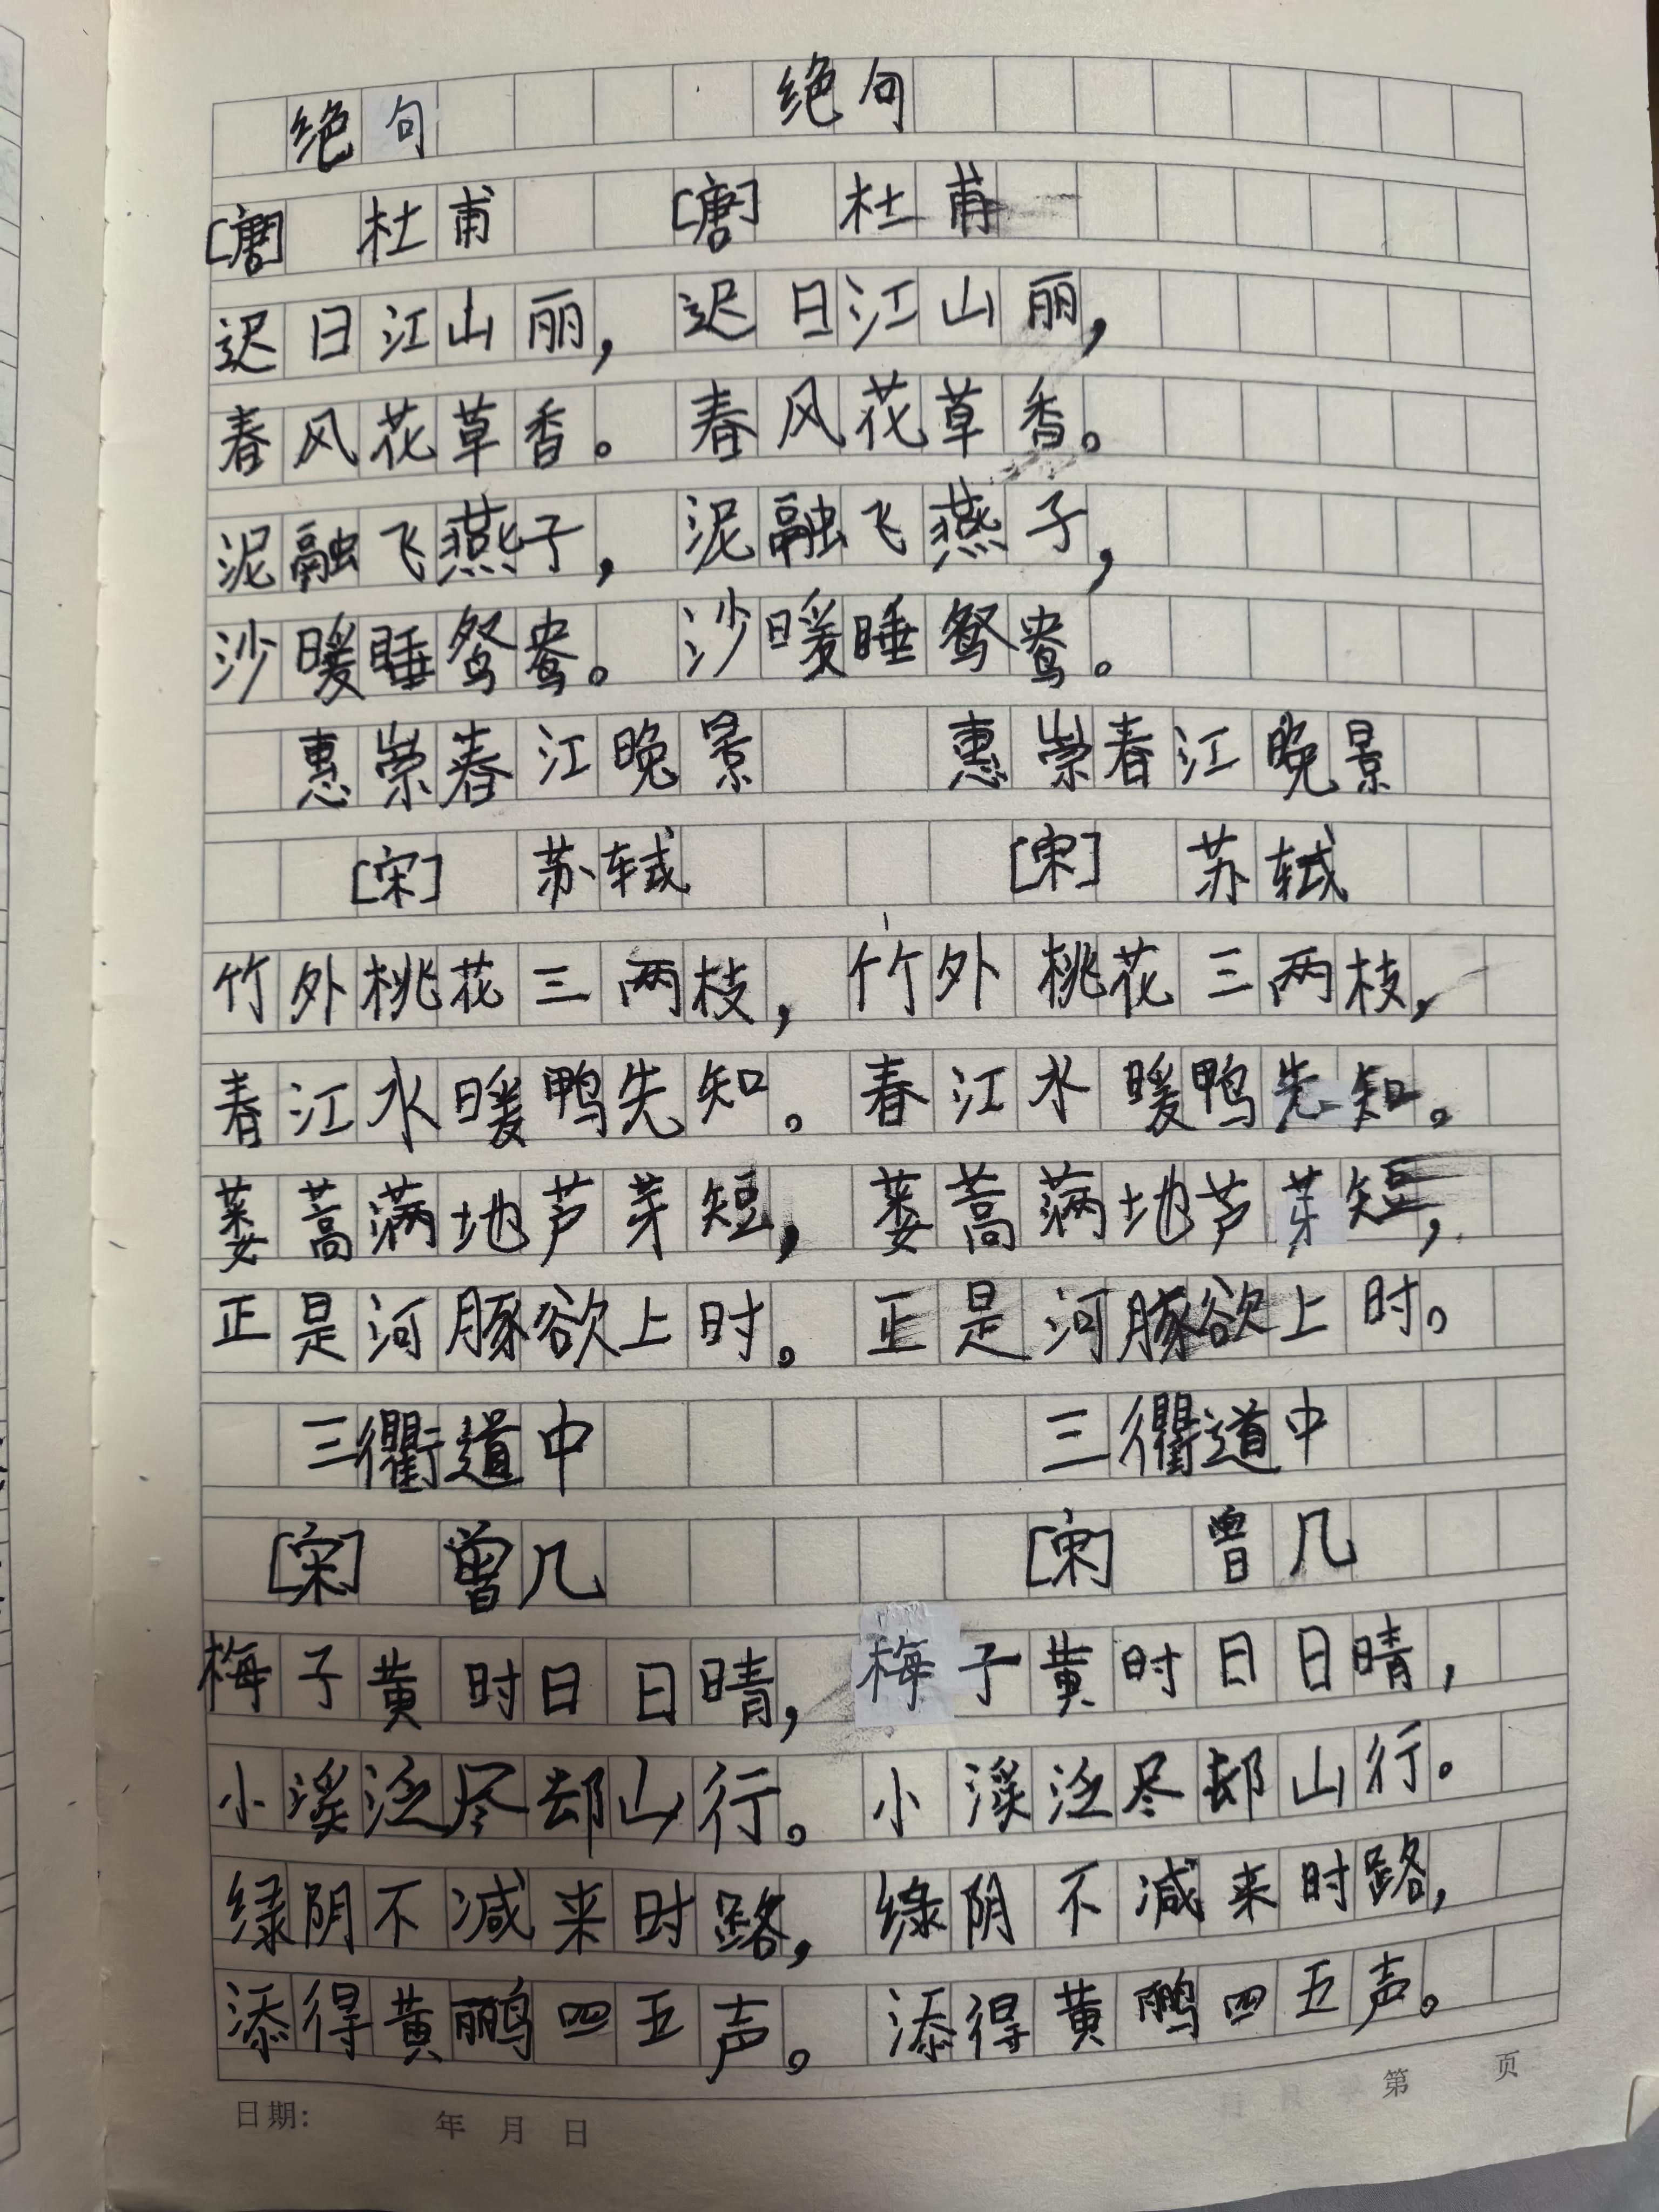 绝句 绝句
[唐] 杜甫 [唐] 杜甫
迟日江山丽，迟日江山丽，
春风花草香。春风花草香。
泥融飞燕子，泥融飞燕子，
沙暖睡鸳鸯。沙暖睡鸳鸯。
惠崇春江晚景 惠崇春江晚景
[宋] 苏轼 [宋] 苏轼
竹外桃花三两枝，竹外桃花三两枝，
春江水暖鸭先知。春江水暖鸭先知。
蒌蒿满地芦芽短，蒌蒿满地芦芽短，
正是河豚欲上时。正是河豚欲上时。
三衢道中 三衢道中
[宋] 曾几 [宋] 曾几
梅子黄时日日晴，梅子黄时日日晴，
小溪泛尽却山行。小溪泛尽却山行。
绿阴不减来时路，绿阴不减来时路，
添得黄鹂四五声。添得黄鹂四五声。
日期： 年 月 日 第 页